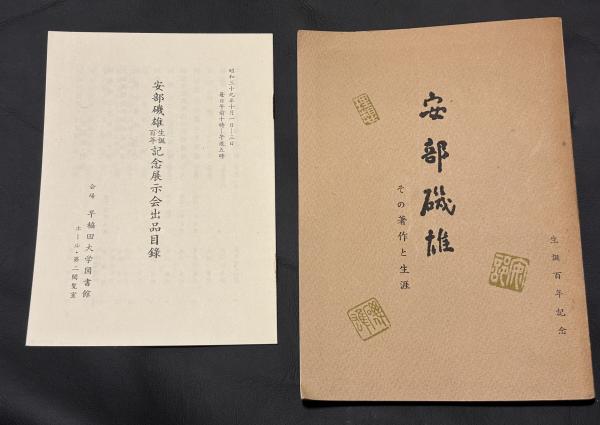 昭和三十九年十月一日―三日
毎日午前十時―午後五時
安部磯雄生誕百年記念展示会出品目録
会場 早稲田大学図書館
ホール・第二閲覧室
生誕百年記念
安部磯雄
その著作と生涯